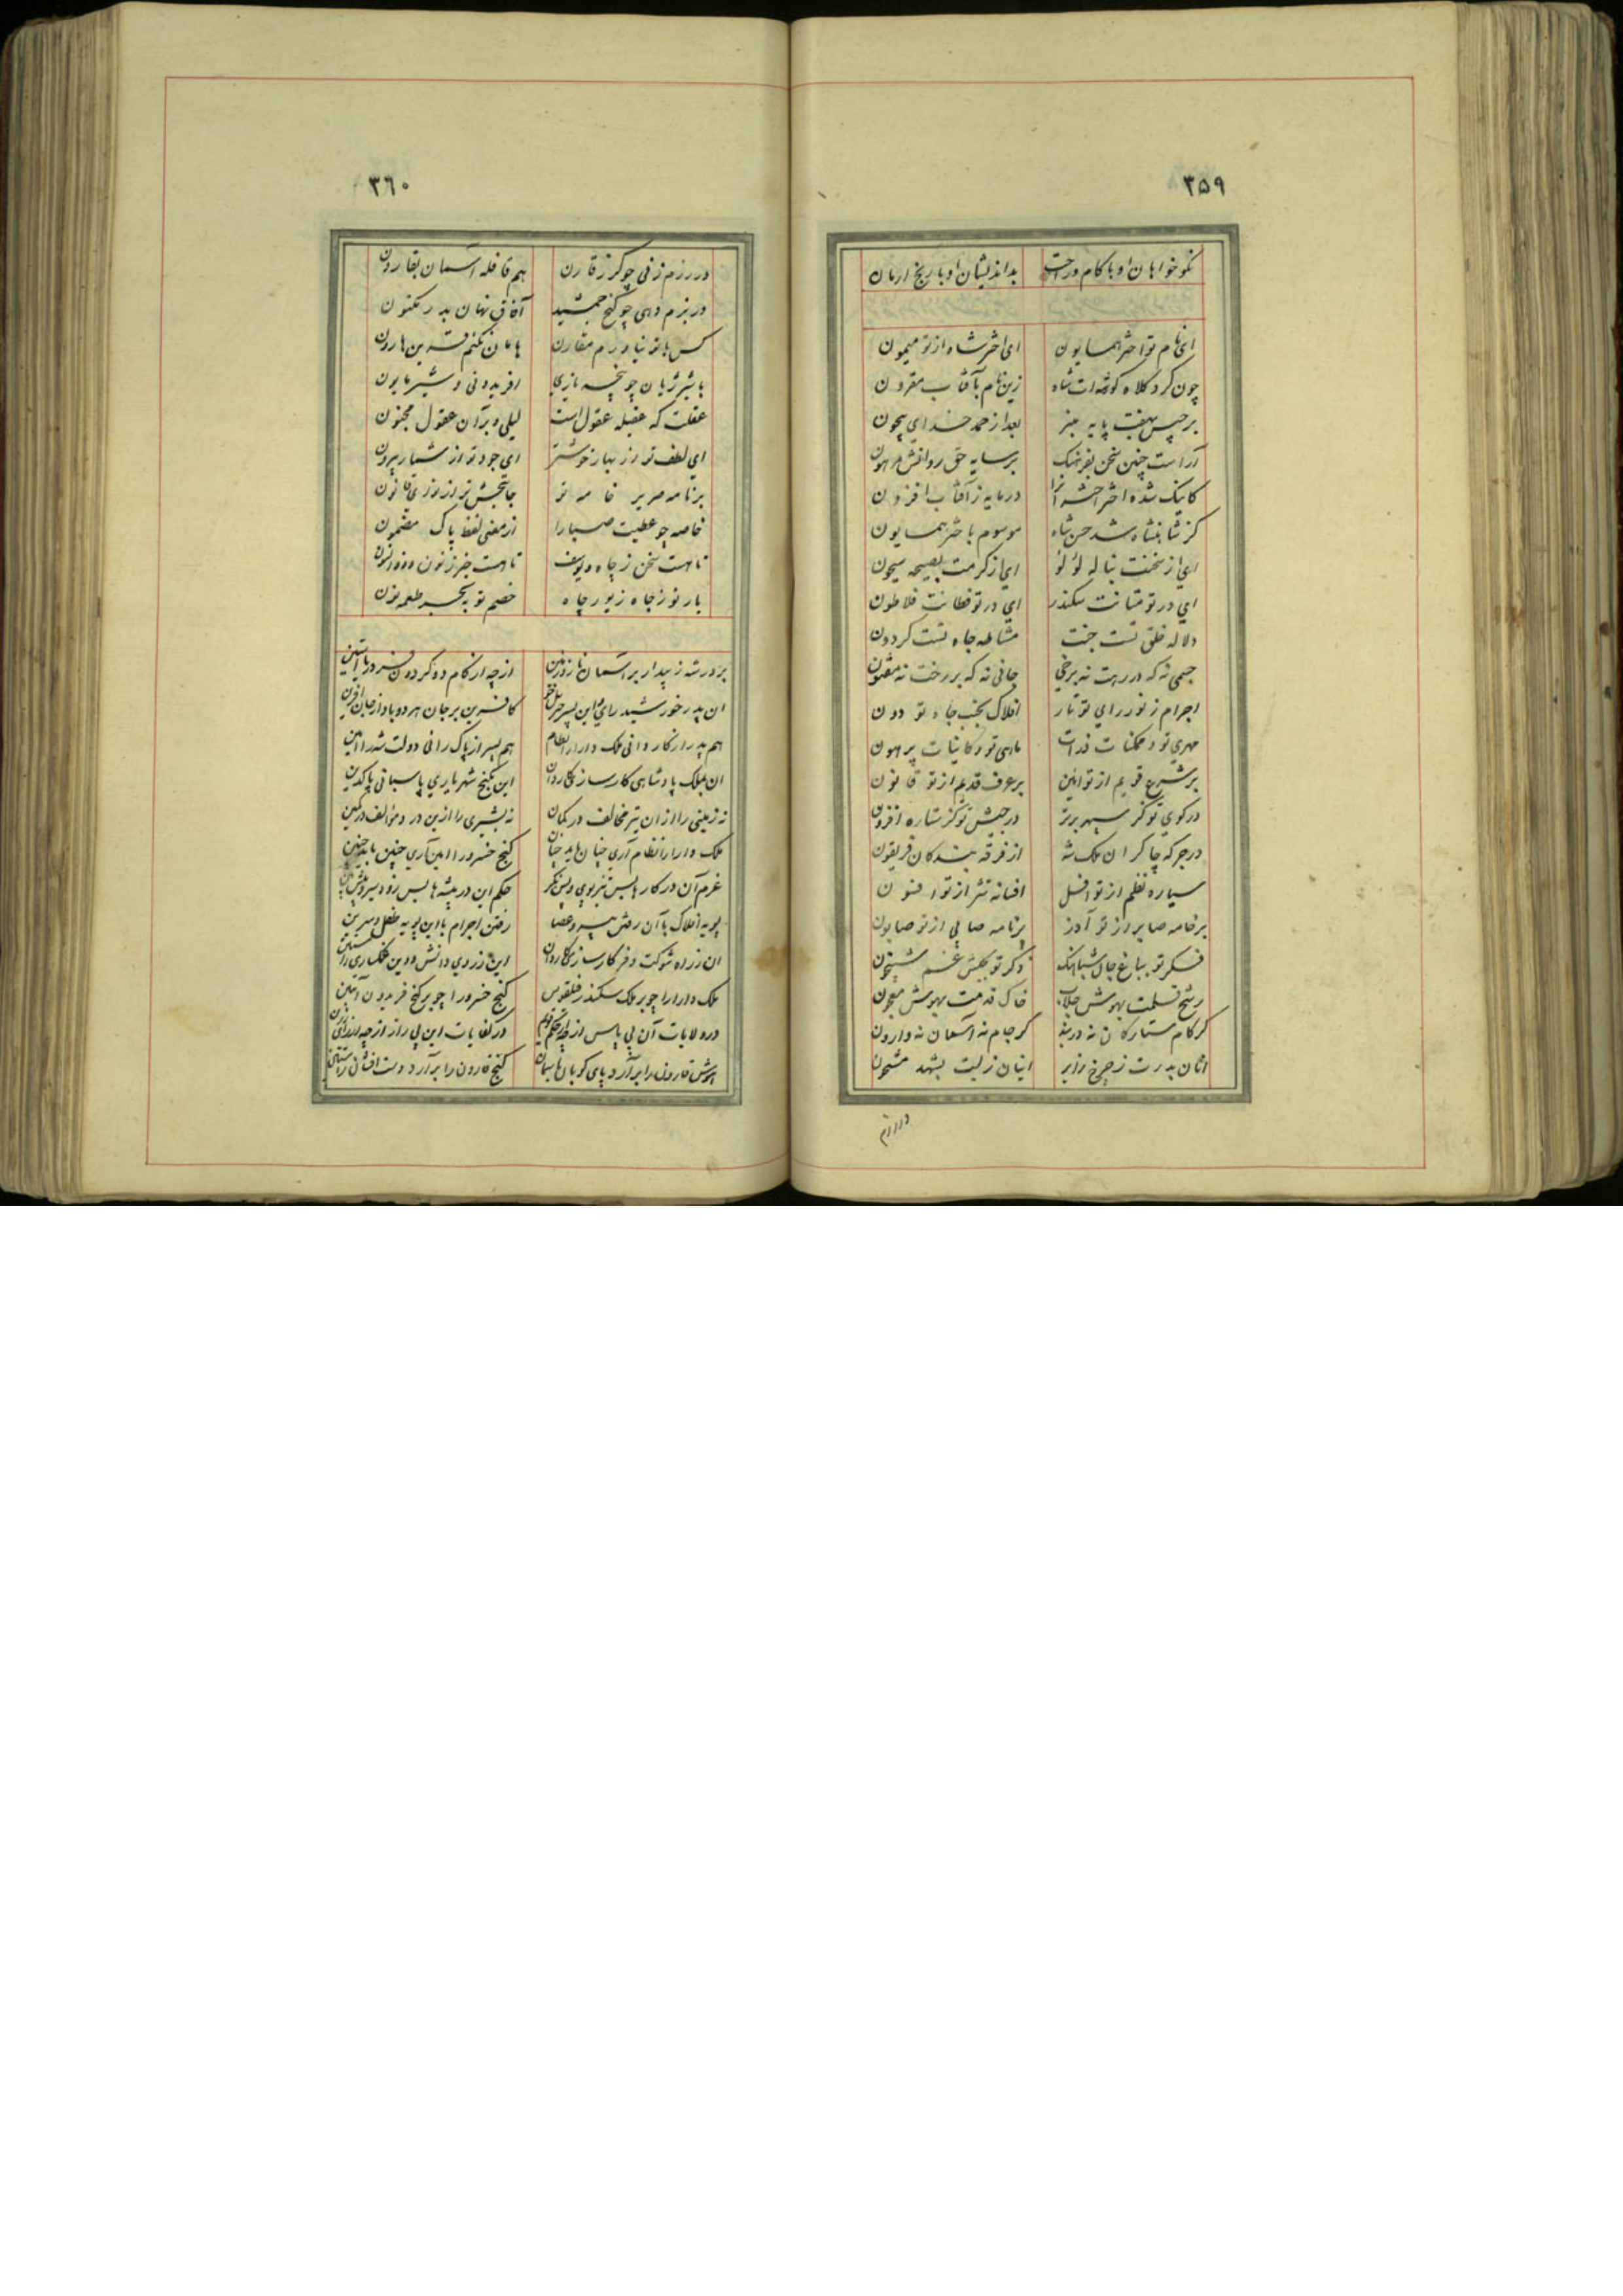 ۳۵۹
نکو خواهان او با کام و راحت بداندیشان او با رنج ارمان
ای نام تو اختر همایون ای اختر شاه از تو میمون
چون کرد کلاه گوشه ات شاه زین نام بآفتاب مقرون
برجیس بهفت پایه منبر بعد از حمد خدای بیچون
آراست چنین سخن بفرهنک بر سایه حق روانش مرهون
کاینک شده اختر اخترانرا در مایه ز آفتاب افزون
کز شاهنشاه شد حسن شاه موسوم باختر همایون
ای از سخنت بناله لؤلؤ ای از کرمت بصیحه سیحون
ای در تو متانت سکندر ای در تو فطانت فلاطون
دلاله خلق تست جنت مشاطه جاه تست کردون
جسمی نه که در رهت نه برخی جانی نه که بر رخت نه مفتون
اجرام ز نور رای تو تار افلاک بجنب جاه تو دون
مهری تو و ممکنات ذرات ماهی تو و کاینات پرهون
بر شرع قویم از تو ائین بر عرف قدیم از تو قانون
در کوی تو کز سپهر برتر در جیش تو کز ستاره افزون
در جرکه چاکران ملک شه از فرقه بندکان فریقون
سیاره نظم از تو افسل افسانه نثر از تو افسون
بر خامه صابر از تو آذر بر نامه صابی از تو صابون
فکر تو بباغ جان شباهنک ذکر تو بجیش غم شبیخون
رشح قلمت بهوش جلاب خاک قدمت بهوش معجون
کر کام ستارکان نه دربند کر جام نه آسمان نه وارون
انان بدرت ز چرخ زایر اینان ز لبت بشهد مشحون
در رزم
۳۶۰
در رزم زنی چو کرز قارن هم قافله آسمان بقارون
در بزم دهی چو کنج جمشید آفاق نهان بدر مکنون
کس با تو نیاورم مقارن هامان نکنم قرین هارون
با شیر ژیان چو پنجه یازی افریدونی و شیر مایون
عقلت که عقیله عقول است لیلی و بر آن عقول مجنون
ای لطف تو از بهار خوشتر ای جود تو از شمار بیرون
بر نامه صریر خامه تو جانبخش تر از نوای قانون
خاصه چو عطیت صبا را از معنی لفظ پاک مضمون
تا هست سخن ز چاه و یوسف تا هست خبر ز نون و ذو النون
یار تو ز جاه زیور چاه خصم تو ببحر طعمه نون
بر در شه ز پیدار بر آسمان تا از زمین از چه از کام دو کردون فر دریا آستین
ان پدر خورشید رای و این پسر جبریل خو کافرین بر جان هر دو باد از جان آفرین
هم پدر از کاردانی ملک دارا را نظام هم پسر از پاک رائی دولت شه را امین
ان بملک پادشاهی کارساز کاردان این بکنج شهریاری پاسبانی پاکدین
نه زمینی را از ان تیر مخالف در کمان نه بشیری را از این در مؤالف در کمین
ملک دارا را نظام آری چنان باید چنان کنج خسرو را امین آری چنین باید چنین
عزم آن در کارها بس تیز پوی و پس نکر حکم این در پیشه ها بس زود سیر و پیش بین
پویه افلاک با آن رفتن پیر و عصا رفتن اجرام با این پویه طفل و سرین
ان ز راه شوکت و فر کارسازی کاردان این ز روی دانش و دین غمکساری راستین
ملک دارا را چو بر ملک سکندر فیلقوس کنج خسرو را چو بر کنج فریدون آتبین
در ولایات آن بی پاس از چه از حکم قویم در کفایات این پی راز از چه از رای رزین
هوش قارون را بر آرد پای کوبان با سمان کنج قارون را بر آرد دست افشان راستین